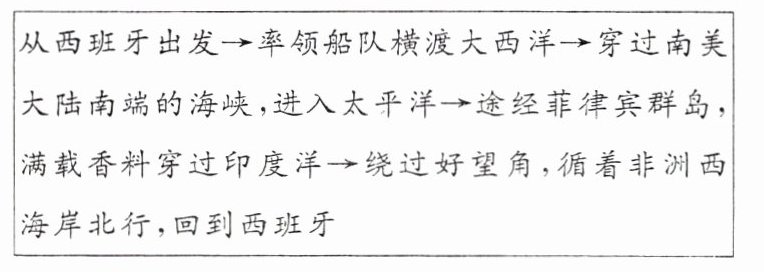 从西班牙出发→率领船队横渡大西洋→穿过南美
大陆南端的海峡,进入太平洋→途经菲律宾群岛,
满载香料穿过印度洋→绕过好望角,循着非洲西
海岸北行,回到西班牙